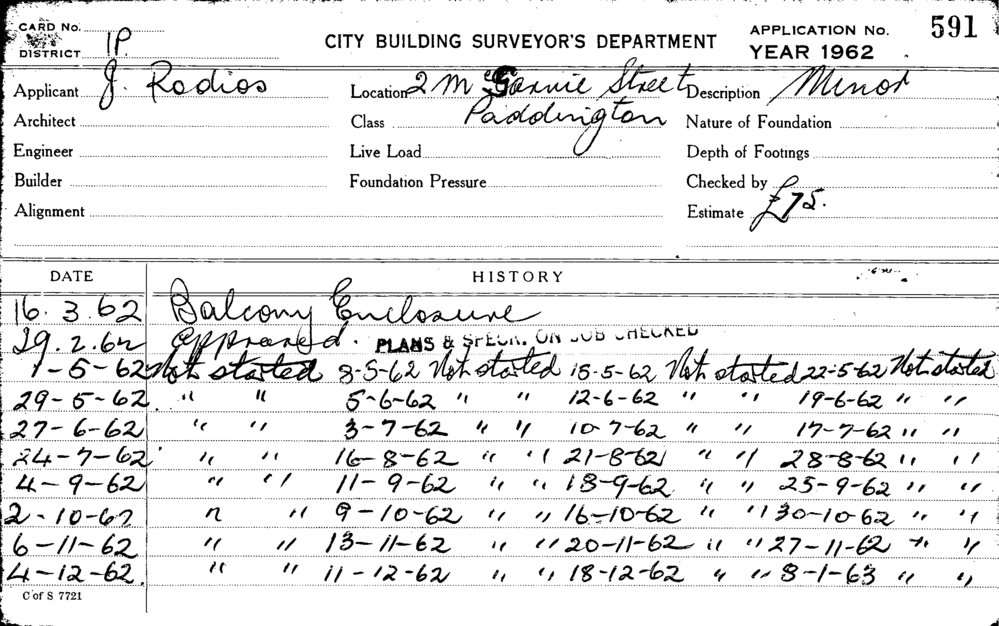 CARD No.
DISTRICT 1P.
CITY BUILDING SURVEYOR'S DEPARTMENT
APPLICATION No. 591
YEAR 1962
Applicant J. Rodios Location 2 Mc Garvie Street Description Minor
Architect Class Paddington Nature of Foundation
Engineer Live Load Depth of Footings
Builder Foundation Pressure Checked by
Alignment Estimate £75.
DATE HISTORY
16.3.62 Balcony Enclosure
29.2.62 Approved. PLANS & SPECN. ON JOB CHECKED
1-5-62 Not started 8-5-62 Not started 15-5-62 Not started 22-5-62 Not started
29-5-62 " " 5-6-62 " " 12-6-62 " " 19-6-62 " "
27-6-62 " " 3-7-62 " " 10-7-62 " " 17-7-62 " "
24-7-62 " " 16-8-62 " " 21-8-62 " " 28-8-62 " "
4-9-62 " " 11-9-62 " " 18-9-62 " " 25-9-62 " "
2-10-62 " " 9-10-62 " " 16-10-62 " " 30-10-62 " "
6-11-62 " " 13-11-62 " " 20-11-62 " " 27-11-62 " "
4-12-62 " " 11-12-62 " " 18-12-62 " " 8-1-63 " "
C of S 7721